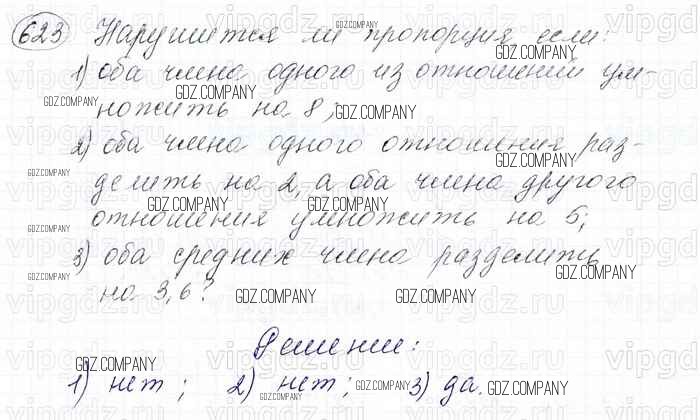 623 Нарушится ли пропорция если:
1) оба члена одного из отношений ум-
ножить на 8;
2) оба члена одного отношения раз-
делить на 2, а оба члена другого
отношения умножить на 5;
3) оба средних члена разделить
на 3,6?
Решение:
1) нет; 2) нет; 3) да.
GDZ.COMPANY
vipgdz.ru